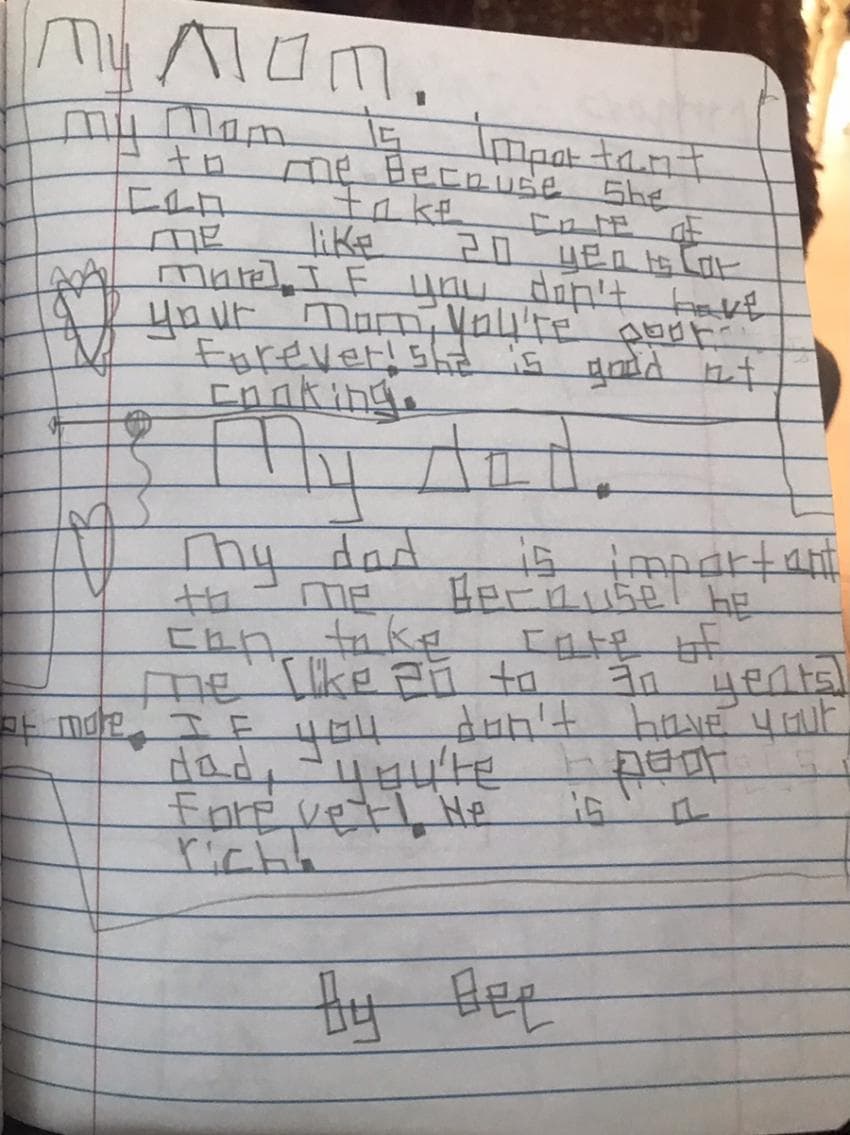 My Mom.
My mom is important
to me. Because she
can take care of
me like 20 years [or
more]. If you don't have
your mom, you're poor
forever! she is good at
cooking.
My dad.
My dad is important
to me Because he
can take care of
me [like 20 to 30 years]
of more. If you don't have your
dad, you're poor
forever!. He is a
rich!.
By Bee